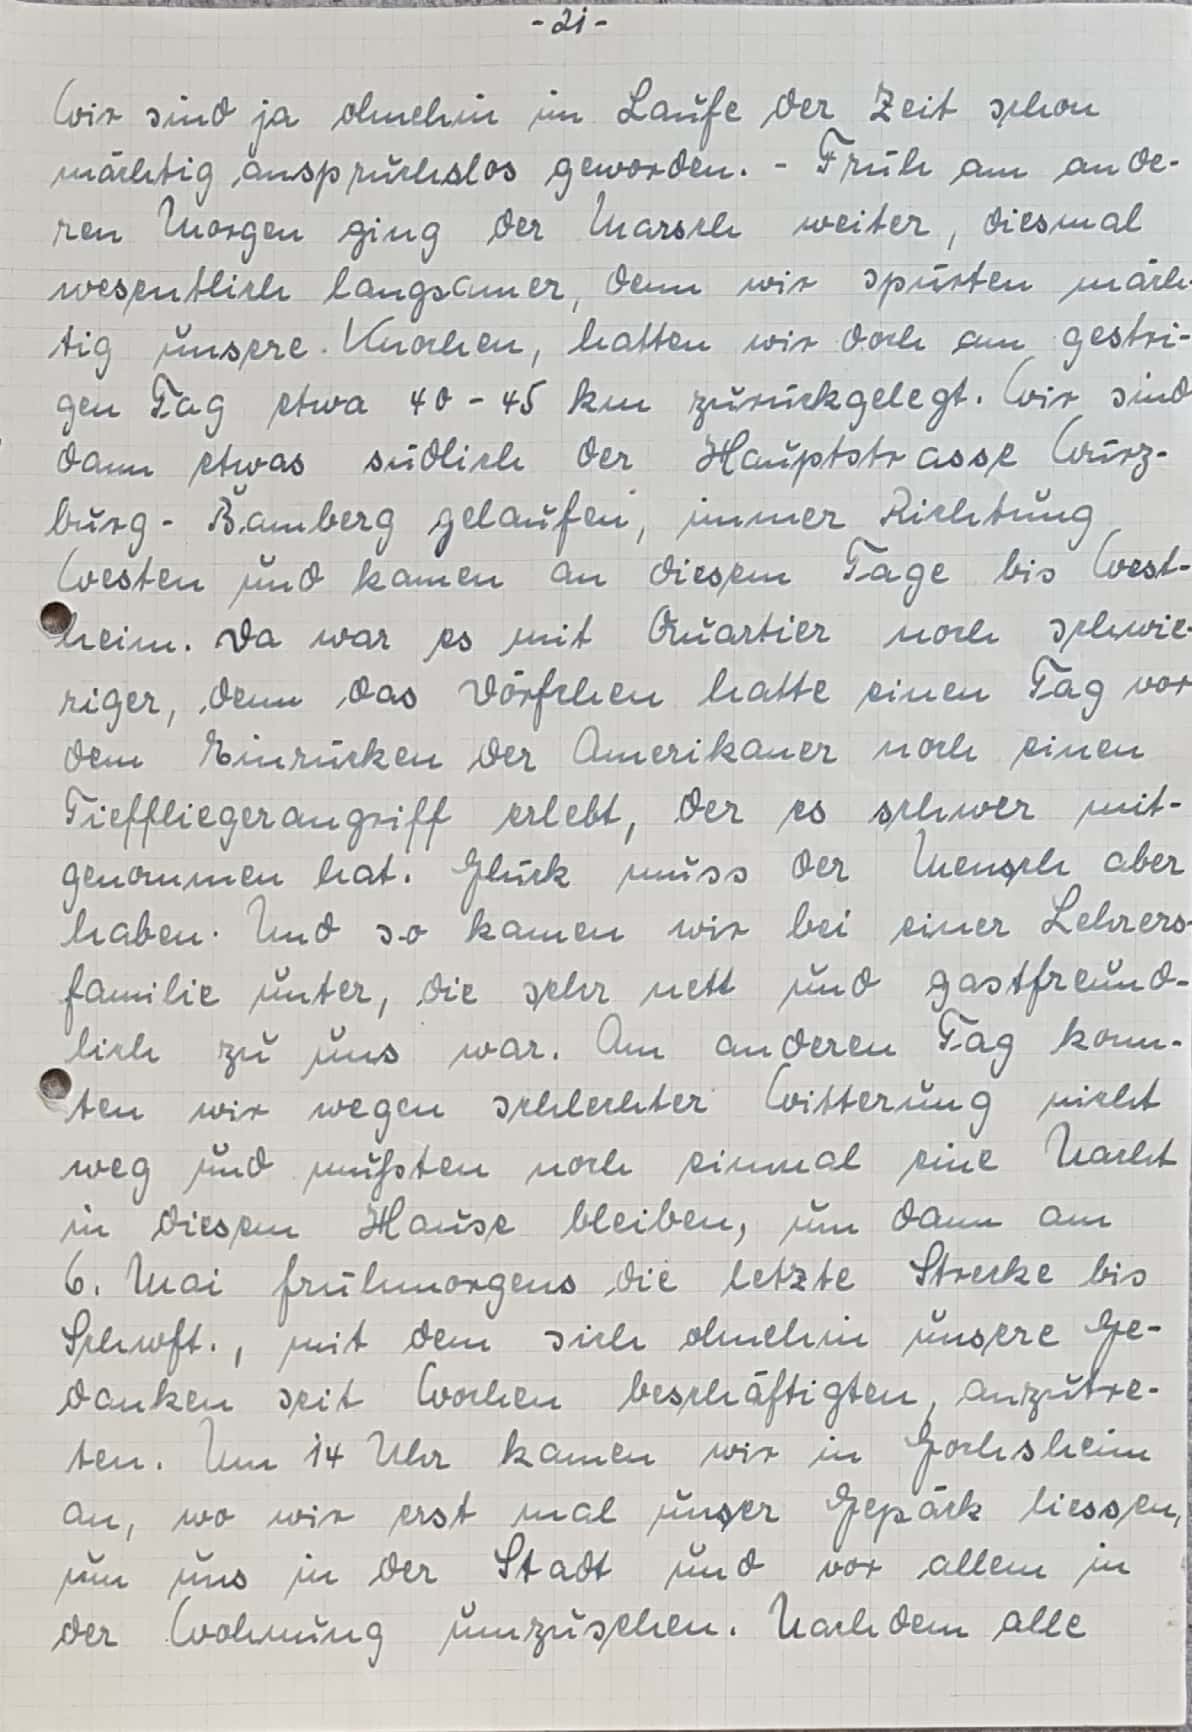 - 21 -
Wir sind ja ohnehin im Laufe der Zeit schon
mächtig anspruchslos geworden. - Früh am ande-
ren Morgen ging der Marsch weiter, diesmal
wesentlich langsamer, denn wir spürten mäch-
tig unsere Knochen, hatten wir doch am gestri-
gen Tag etwa 40 - 45 km zurückgelegt. Wir sind
dann etwas südlich der Hauptstrasse Würz-
burg - Bamberg gelaufen, immer Richtung
Westen und kamen an diesem Tage bis West-
heim. Da war es mit Quartier noch schwie-
riger, denn das Dörfchen hatte einen Tag vor
dem Einrücken der Amerikaner noch einen
Tieffliegerangriff erlebt, der es schwer mit-
genommen hat. Glück muss der Mensch aber
haben. Und so kamen wir bei einer Lehrers-
familie unter, die sehr nett und gastfreund-
lich zu uns war. Am anderen Tag konn-
ten wir wegen schlechter Witterung nicht
weg und mußten noch einmal eine Nacht
in diesem Hause bleiben, um dann am
6. Mai frühmorgens die letzte Strecke bis
Schwft., mit dem sich ohnehin unsere Ge-
danken seit Wochen beschäftigten, anzutre-
ten. Um 14 Uhr kamen wir in Gochsheim
an, wo wir erst mal unser Gepäck liessen,
um uns in der Stadt und vor allem in
der Wohnung umzusehen. Nachdem alle